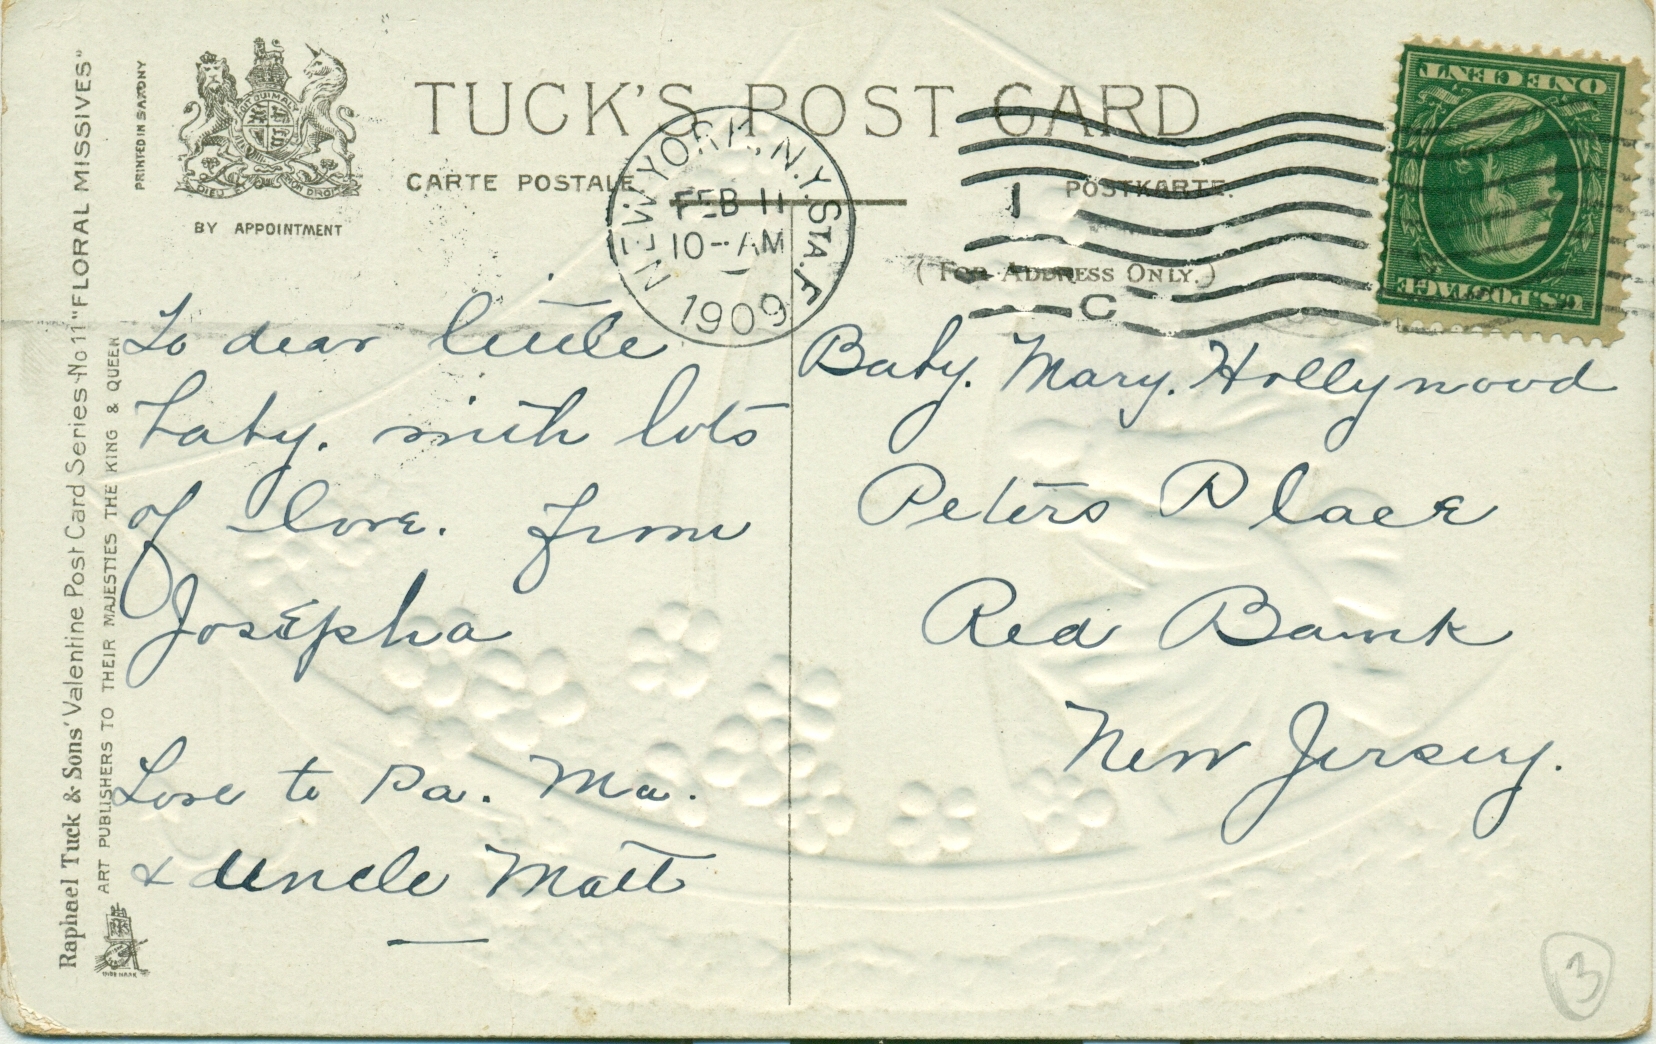 TUCK'S POST CARD
CARTE POSTALE
POSTKARTE.
(FOR ADDRESS ONLY.)
BY APPOINTMENT
DIEU ET MON DROIT
PRINTED IN SAXONY
Raphael Tuck & Sons' Valentine Post Card Series No 11 "FLORAL MISSIVES"
ART PUBLISHERS TO THEIR MAJESTIES THE KING & QUEEN
NEW YORK, N.Y. STA. F
FEB 11
10-AM
1909
1
C
ONE CENT
U.S. POSTAGE
To dear little
baby. with lots
of love. from
Josepha
Love to Pa. Ma.
& Uncle Matt
Baby. Mary. Hollywood
Peters Place
Red Bank
New Jersey.
3